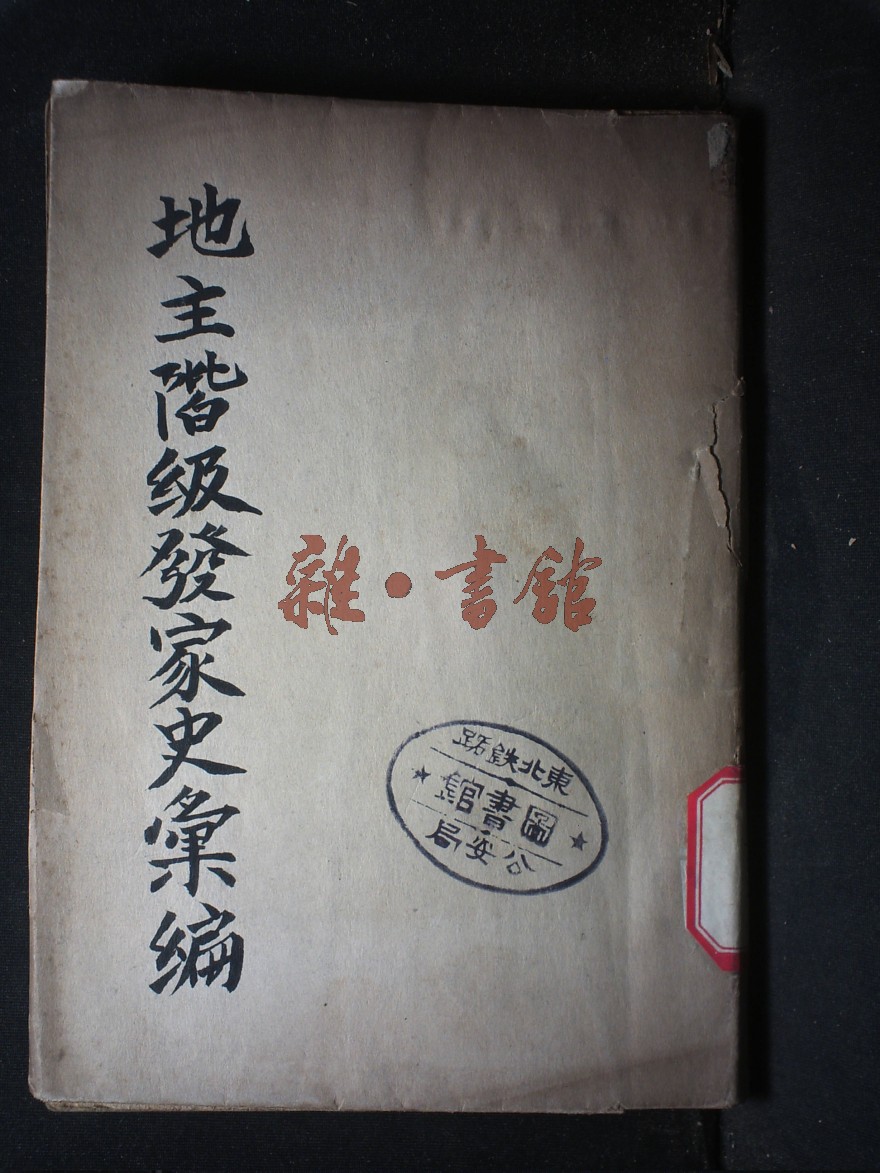 地主階級發家史彙編
雜·書館
東北鉄路
圖書館
公安局